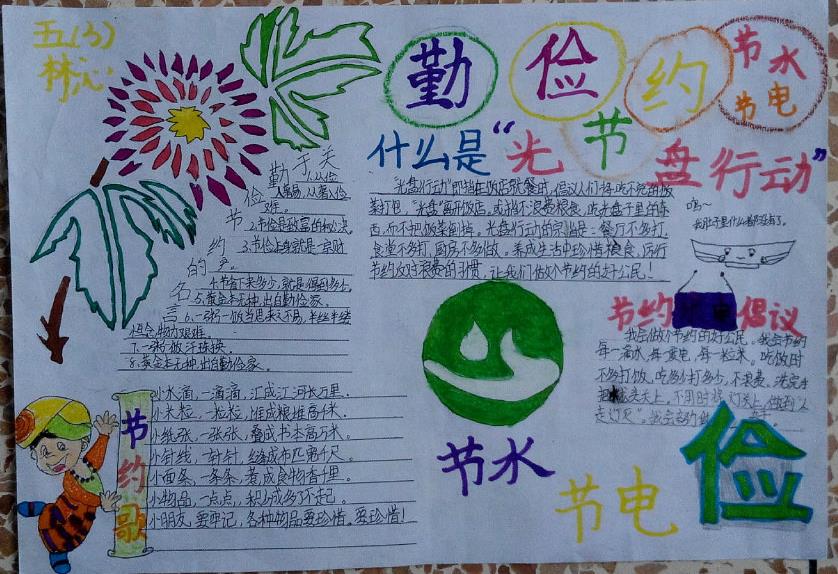 五(3)
林
勤
俭
节
约
节水
节电
什么是“光
盘行动”
关
于
勤
俭
节
约
的
名
言
1.从俭
入奢易,从奢入俭
难。
2.节俭是致富的秘诀。
3.节俭本身就是一宗财
产。
4.节省下来多少,就是得到多少。
5.黄金本无种,出自勤俭家。
6.一粥一饭当思来之不易,半丝半缕
恒念物力艰难。
7.一粥一饭,汗珠换。
8.黄金本无种,出自勤俭家。
“光盘行动”即指在饭店就餐时,倡议人们将吃不完的饭
菜打包,“光盘”离开饭店,或指不浪费粮食,吃光盘子里的东
西,而不把饭菜倒掉。光盘行动的宗旨是:餐厅不多打,
食堂不多打,厨房不多做。养成生活中珍惜粮食,厉行
节约反对浪费的习惯,让我们做个节约的好公民!
呜~
我肚子里什么都没有了。
节约 倡议
我会做个节约的好公民。我会节约
每一滴水,每一度电,每一粒米。吃饭时
不多打饭,吃多少打多少,不浪费,洗完手
把 关上,不用时将灯关上,做到“人
走灯灭”。我会
节约歌
小水滴,一滴滴,汇成江河长万里。
小米粒,一粒粒,堆成粮堆高千米。
小纸张,一张张,叠成书本高万米。
小针线,一针针,缝成布匹宽千尺。
小面条,一条条,煮成食物香千里。
小物品,一点点,积少成多了不起。
小朋友,要牢记,各种物品要珍惜。要珍惜!
节水
节电
俭